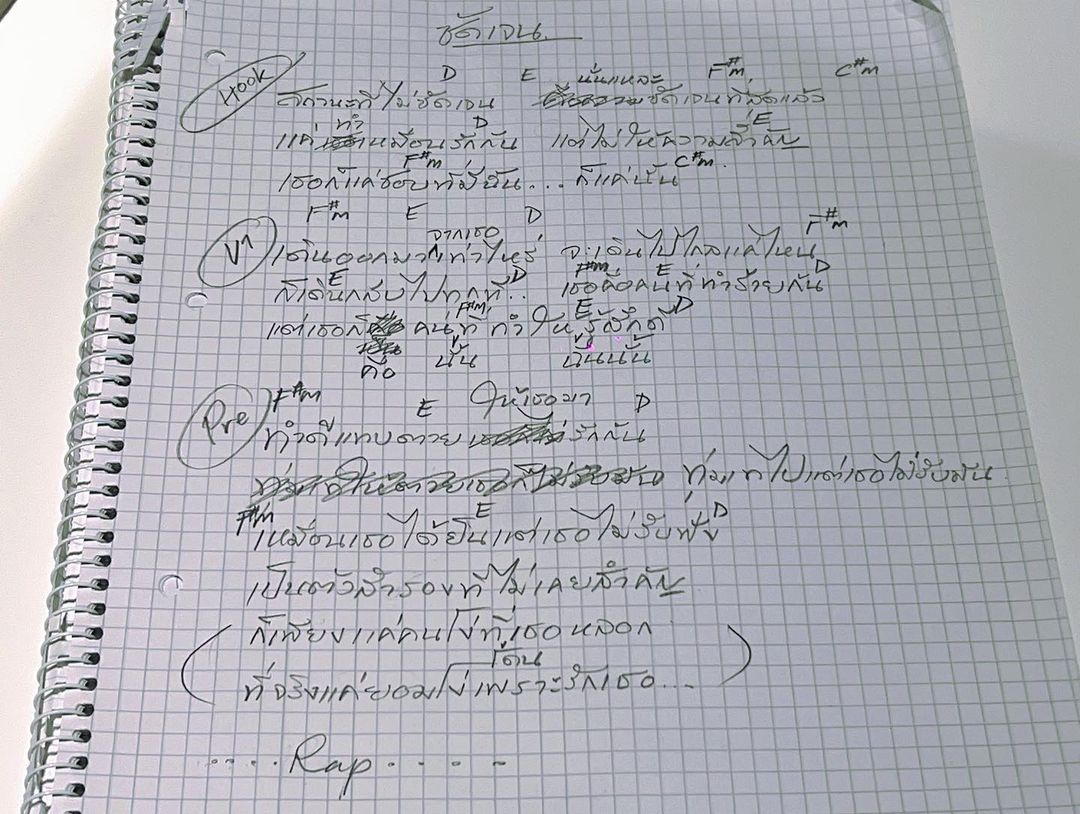 ชัดเจน
Hook
D E นั่นแหละ F#m C#m
สถานะที่ไม่ชัดเจน ชัดเจนที่สุดแล้ว
ทำ D E
แค่เหมือนรักกัน แต่ไม่ให้ความสำคัญ
F#m C#m
เธอก็แค่ชอบที่มีฉัน... ก็แค่นั้น
F#m E D F#m
V1
จากเธอ
เดินออกมาเท่าไหร่ จะเดินไปไกลแค่ไหน
E D F#m E D
ก็เดินกลับไปทุกที.. เธอคือคนที่ทำร้ายกัน
F#m E D
แต่เธอก็ คนที่ ทำให้รู้สึกดี
คือ นั้น ฉันนั้น
Pre
F#m E ให้เธอมา D
ทำดีแทบตาย รักกัน
ทุ่มเทไปแต่เธอไม่รับมัน
F#m E D
เหมือนเธอได้ยินแต่เธอไม่รับฟัง
เป็นตัวสำรองที่ไม่เคยสำคัญ
ก็เพียงแค่คนโง่ที่เธอหลอก
โดน
ที่จริงแค่ยอมโง่เพราะรักเธอ...
.....Rap.....